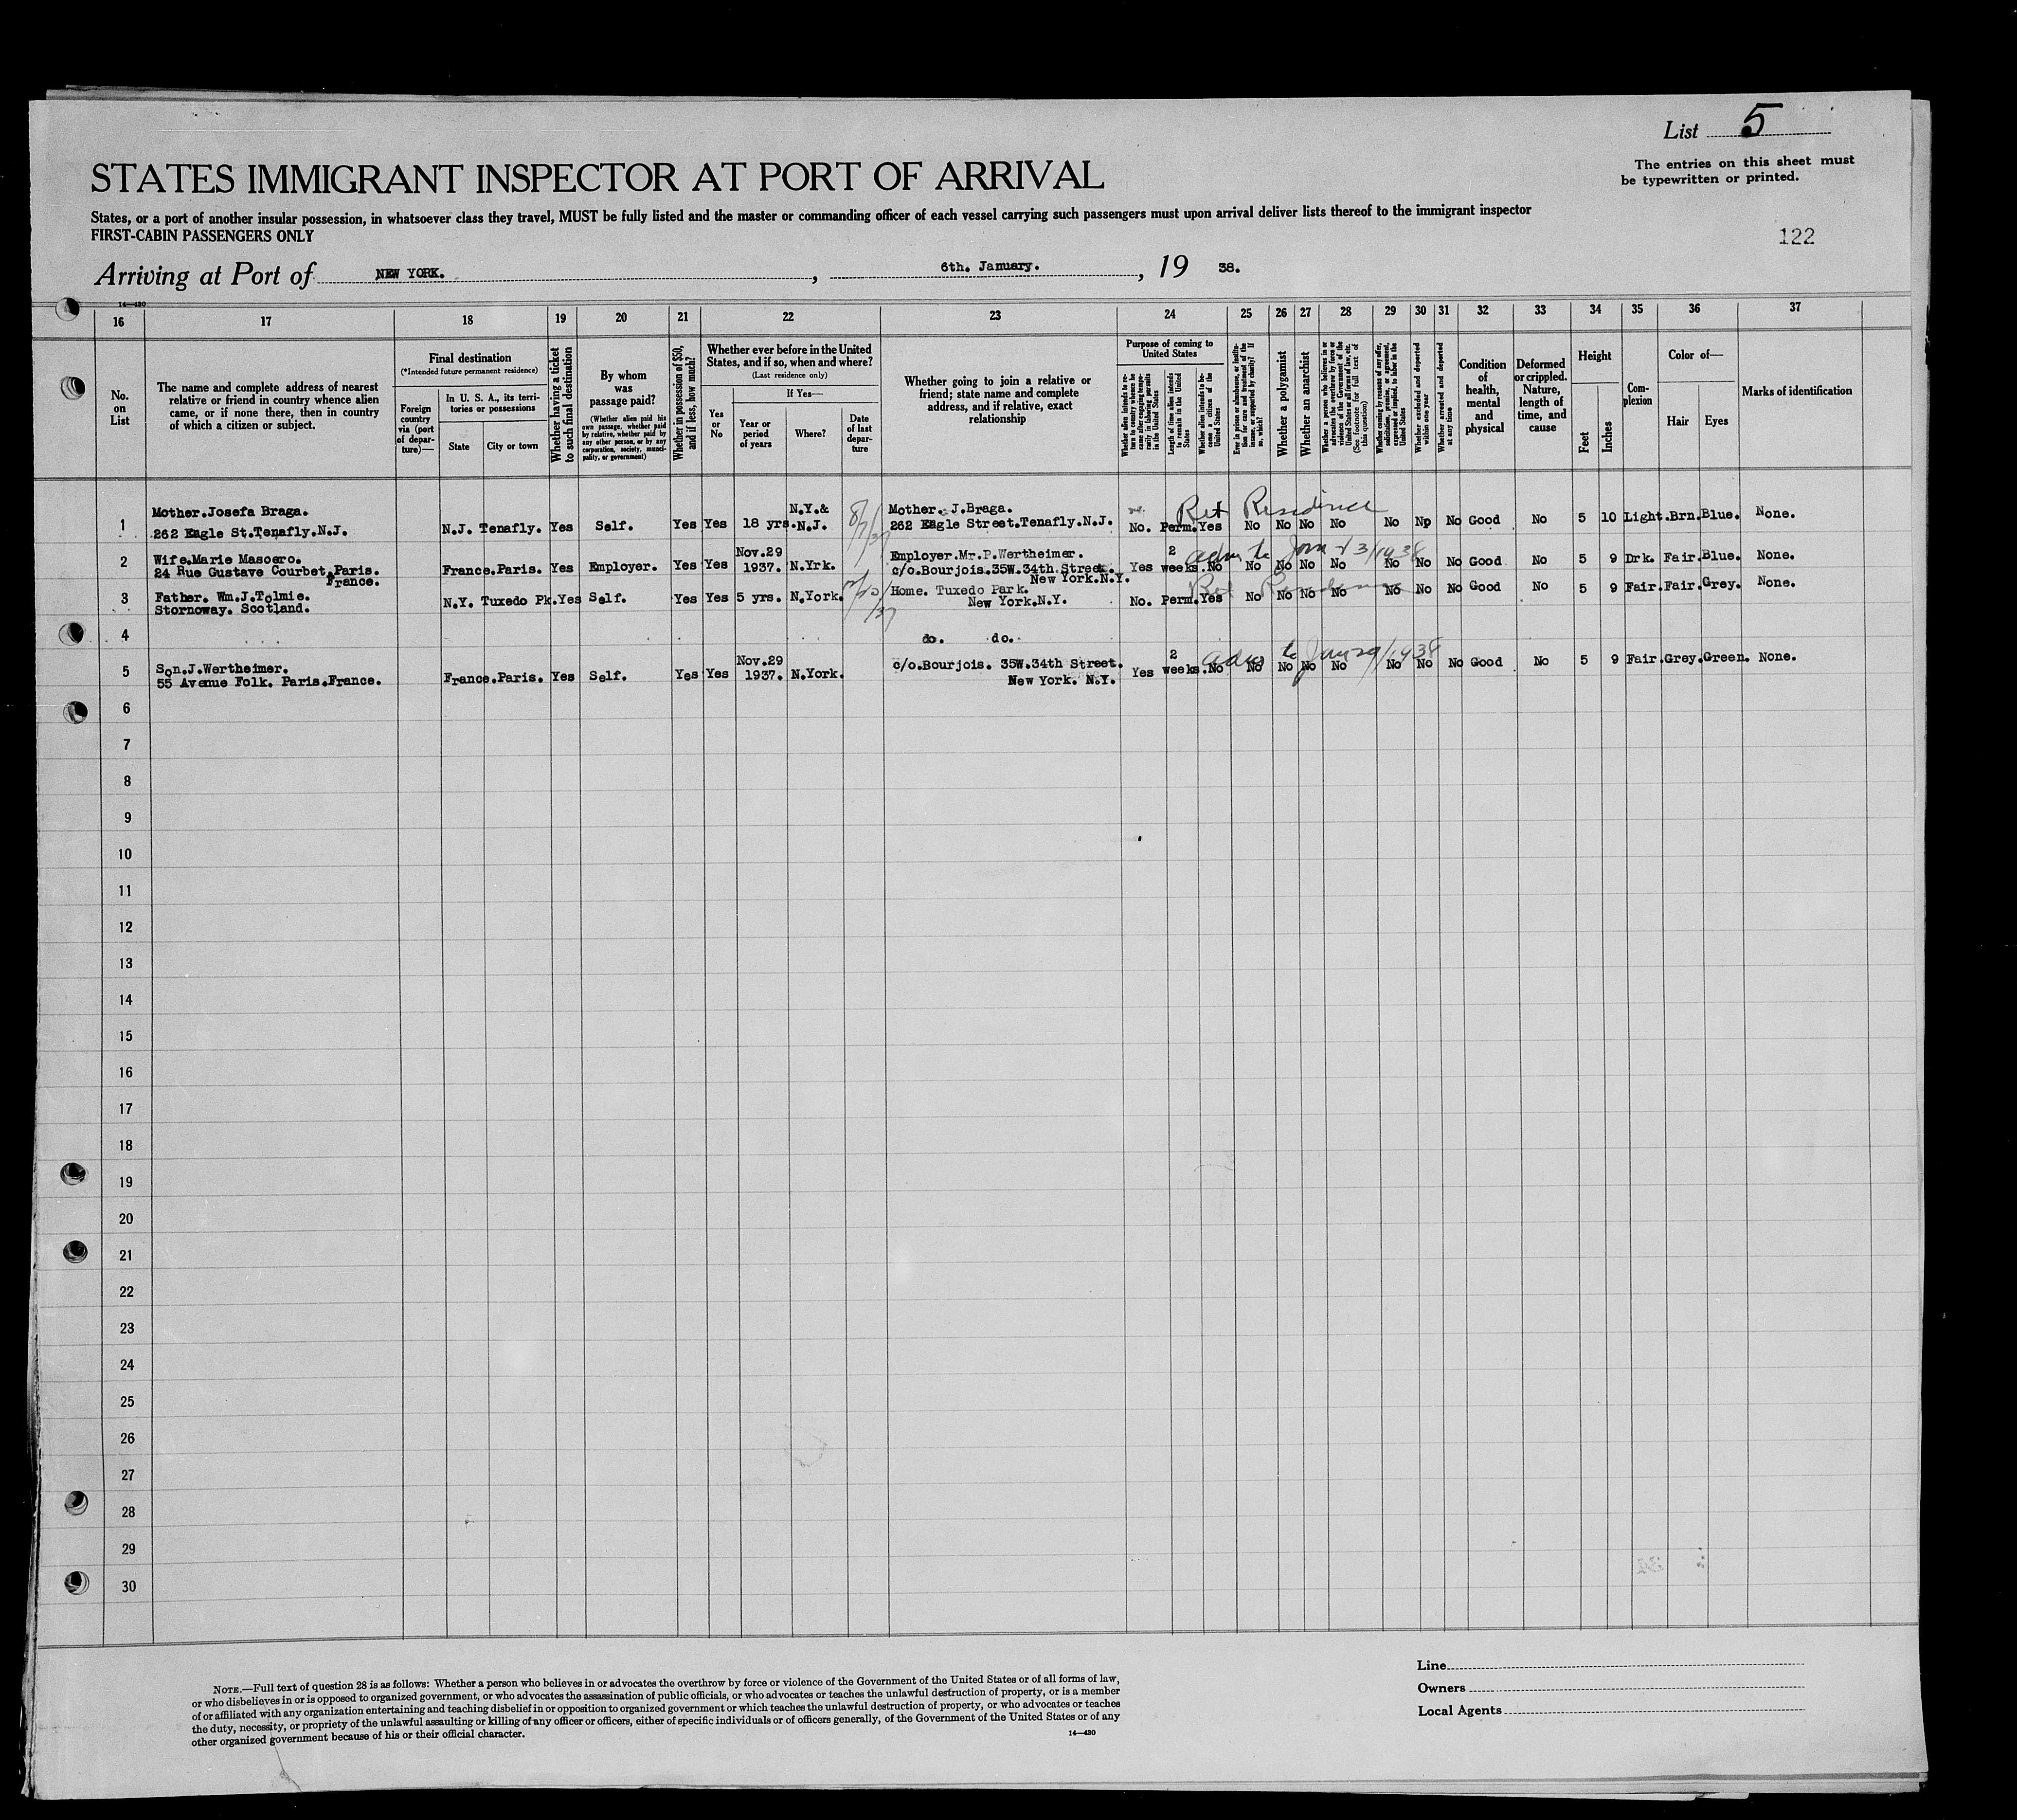 List 5
The entries on this sheet must
be typewritten or printed.
STATES IMMIGRANT INSPECTOR AT PORT OF ARRIVAL
States, or a port of another insular possession, in whatsoever class they travel, MUST be fully listed and the master or commanding officer of each vessel carrying such passengers must upon arrival deliver lists thereof to the immigrant inspector
FIRST-CABIN PASSENGERS ONLY
122
Arriving at Port of NEW YORK. , 6th. January. , 19 38.
14—430
16 17 18 19 20 21 22 23 24 25 26 27 28 29 30 31 32 33 34 35 36 37
No.
on
List
The name and complete address of nearest
relative or friend in country whence alien
came, or if none there, then in country
of which a citizen or subject.
Final destination
(*Intended future permanent residence)
Foreign
country
via (port
of depar-
ture)—
In U. S. A., its terri-
tories or possessions
State
City or town
Whether having a ticket
to such final destination
By whom
was
passage paid?
(Whether alien paid his
own passage, whether paid
by relative, whether paid by
any other person, or by any
corporation, society, munici-
pality, or government)
Whether in possession of $50,
and if less, how much?
Whether ever before in the United
States, and if so, when and where?
(Last residence only)
Yes
or
No
If Yes—
Year or
period
of years
Where?
Date
of last
depar-
ture
Whether going to join a relative or
friend; state name and complete
address, and if relative, exact
relationship
Purpose of coming to
United States
Whether alien intends to re-
turn to country whence he
came after engaging tempo-
rarily in laboring pursuits
in the United States
Length of time alien intends
to remain in the United
States
Whether alien intends to be-
come a citizen of the
United States
Ever in prison or almshouse, or institu-
tion for care and treatment of the
insane, or supported by charity? If
so, which?
Whether a polygamist
Whether an anarchist
Whether a person who believes in or
advocates the overthrow by force or
violence of the Government of the
United States or all forms of law, etc.
(See footnote for full text of
this question)
Whether coming by reasons of any offer,
solicitation, promise, or agreement,
expressed or implied, to labor in the
United States
Whether excluded and deported
within one year
Whether arrested and deported
at any time
Condition
of
health,
mental
and
physical
Deformed
or crippled.
Nature,
length of
time, and
cause
Height
Feet
Inches
Com-
plexion
Color of—
Hair
Eyes
Marks of identification
Ret Residence
1 Mother.Josefa Braga.
262 Eagle St.Tenafly.N.J. N.J. Tenafly. Yes Self. Yes Yes 18 yrs. N.Y.& N.J. 8/7/37 Mother. J.Braga.
262 Eagle Street.Tenafly.N.J. No. Perm. Yes No No No No No Np No Good No 5 10 Light. Brn. Blue. None.
adm to Jan 23/1938
2 Wife.Marie Mascero.
24 Rue Gustave Courbet.Paris.
France. France.Paris. Yes Employer. Yes Yes Nov.29 1937. N.Yrk. Employer.Mr.P.Wertheimer.
c/o.Bourjois.35W.34th.Street.
New York.N.Y. Yes 2 weeks. No No No No No No No No Good No 5 9 Drk. Fair. Blue. None.
Ret Residence
3 Father. Wm.J.Tolmie.
Stornoway. Scotland. N.Y. Tuxedo Pk. Yes Self. Yes Yes 5 yrs. N.York. Home. Tuxedo Park.
New York.N.Y. No. Perm. Yes No No No No No No No Good No 5 9 Fair. Fair. Grey. None.
4 do. do.
adm to Jan 29/1938
5 Son.J.Wertheimer.
55 Avenue Folk. Paris.France. France.Paris. Yes Self. Yes Yes Nov.29 1937. N.York. c/o.Bourjois. 35W.34th Street.
New York. N.Y. Yes 2 weeks. No No No No No No No No Good No 5 9 Fair. Grey. Green. None.
6
7
8
9
10
11
12
13
14
15
16
17
18
19
20
21
22
23
24
25
26
27
28
29
30
NOTE.—Full text of question 28 is as follows: Whether a person who believes in or advocates the overthrow by force or violence of the Government of the United States or of all forms of law,
or who disbelieves in or is opposed to organized government, or who advocates the assassination of public officials, or who advocates or teaches the unlawful destruction of property, or is a member
of or affiliated with any organization entertaining and teaching disbelief in or opposition to organized government or which teaches the unlawful destruction of property, or who advocates or teaches
the duty, necessity, or propriety of the unlawful assaulting or killing of any officer or officers, either of specific individuals or of officers generally, of the Government of the United States or of any
other organized government because of his or their official character.
14—430
Line
Owners
Local Agents